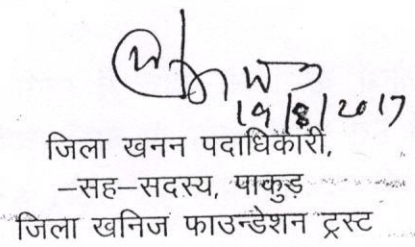 19/8/2017
जिला खनन पदाधिकारी,
–सह–सदस्य, पाकुड़
जिला खनिज फाउन्डेशन ट्रस्ट